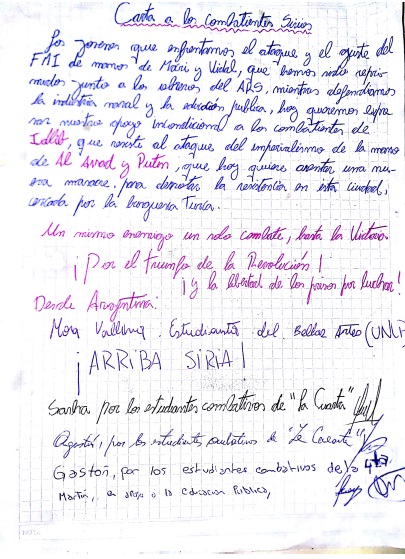 Carta a los Combatientes Sirios
Los jovenes que enfrentamos el ataque y el ajuste del
FMI de manos de Macri y Vidal, que hemos sido repri-
midos junto a los obreros del ARS, mientras defendiamos
la industria naval y la educación publica, hoy queremos expre
sar nuestro apoyo incondicional a los combatientes de
Idlib, que resiste al ataque del imperialismo de la mano
de Al Asad y Putin, que hoy quiere asentar una nu-
eva masacre, para derrotar la resistencia en esta ciudad,
cercada por la burguesia Turca.
Un mismo enemigo un solo combate, hasta la Victoria
¡Por el triunfo de la Revolución!
¡y la libertad de los presos por luchar!
Desde Argentina:
Mora Estudiante del Bellas Artes (UNLP
¡ARRIBA SIRIA!
Sasha por los estudiantes combativos de "La Cuarta"
Agustín, por los estudiantes combativos de "La Cuarta"
Gastón, por los estudiantes combativos de la 4ta
Martín, en apoyo a la Educacion Publica,